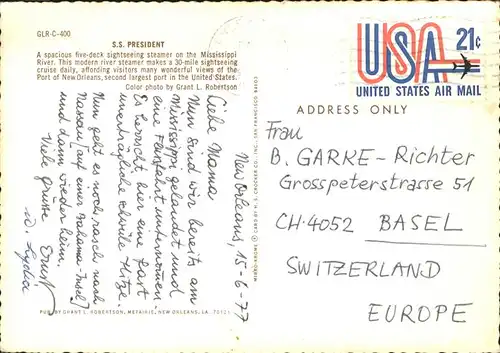 GLR-C-400
S.S. PRESIDENT
A spacious five-deck sightseeing steamer on the Mississippi
River. This modern river steamer makes a 30-mile sightseeing
cruise daily, affording visitors many wonderful views of the
Port of New Orleans, second largest port in the United States.
Color photo by Grant L. Robertson
New Orleans, 15-6-77
Liebe Mama
Nun sind wir bereits am
Mississippi gelandet und
eine Flussfahrt unternommen.
Es herrscht hier eine fast
unerträgliche schwüle Hitze.
Nun geht es noch rasch nach
Nassau [auf einer Bahama-Insel]
und dann wieder heim.
Viele Grüsse Ernst
u. Lydia
PUB BY GRANT L. ROBERTSON, METAIRIE, NEW ORLEANS, LA. 70121
USA 21¢
UNITED STATES AIR MAIL
ADDRESS ONLY
Frau
B. GARKE-Richter
Grosspeterstrasse 51
CH-4052 BASEL
SWITZERLAND
EUROPE